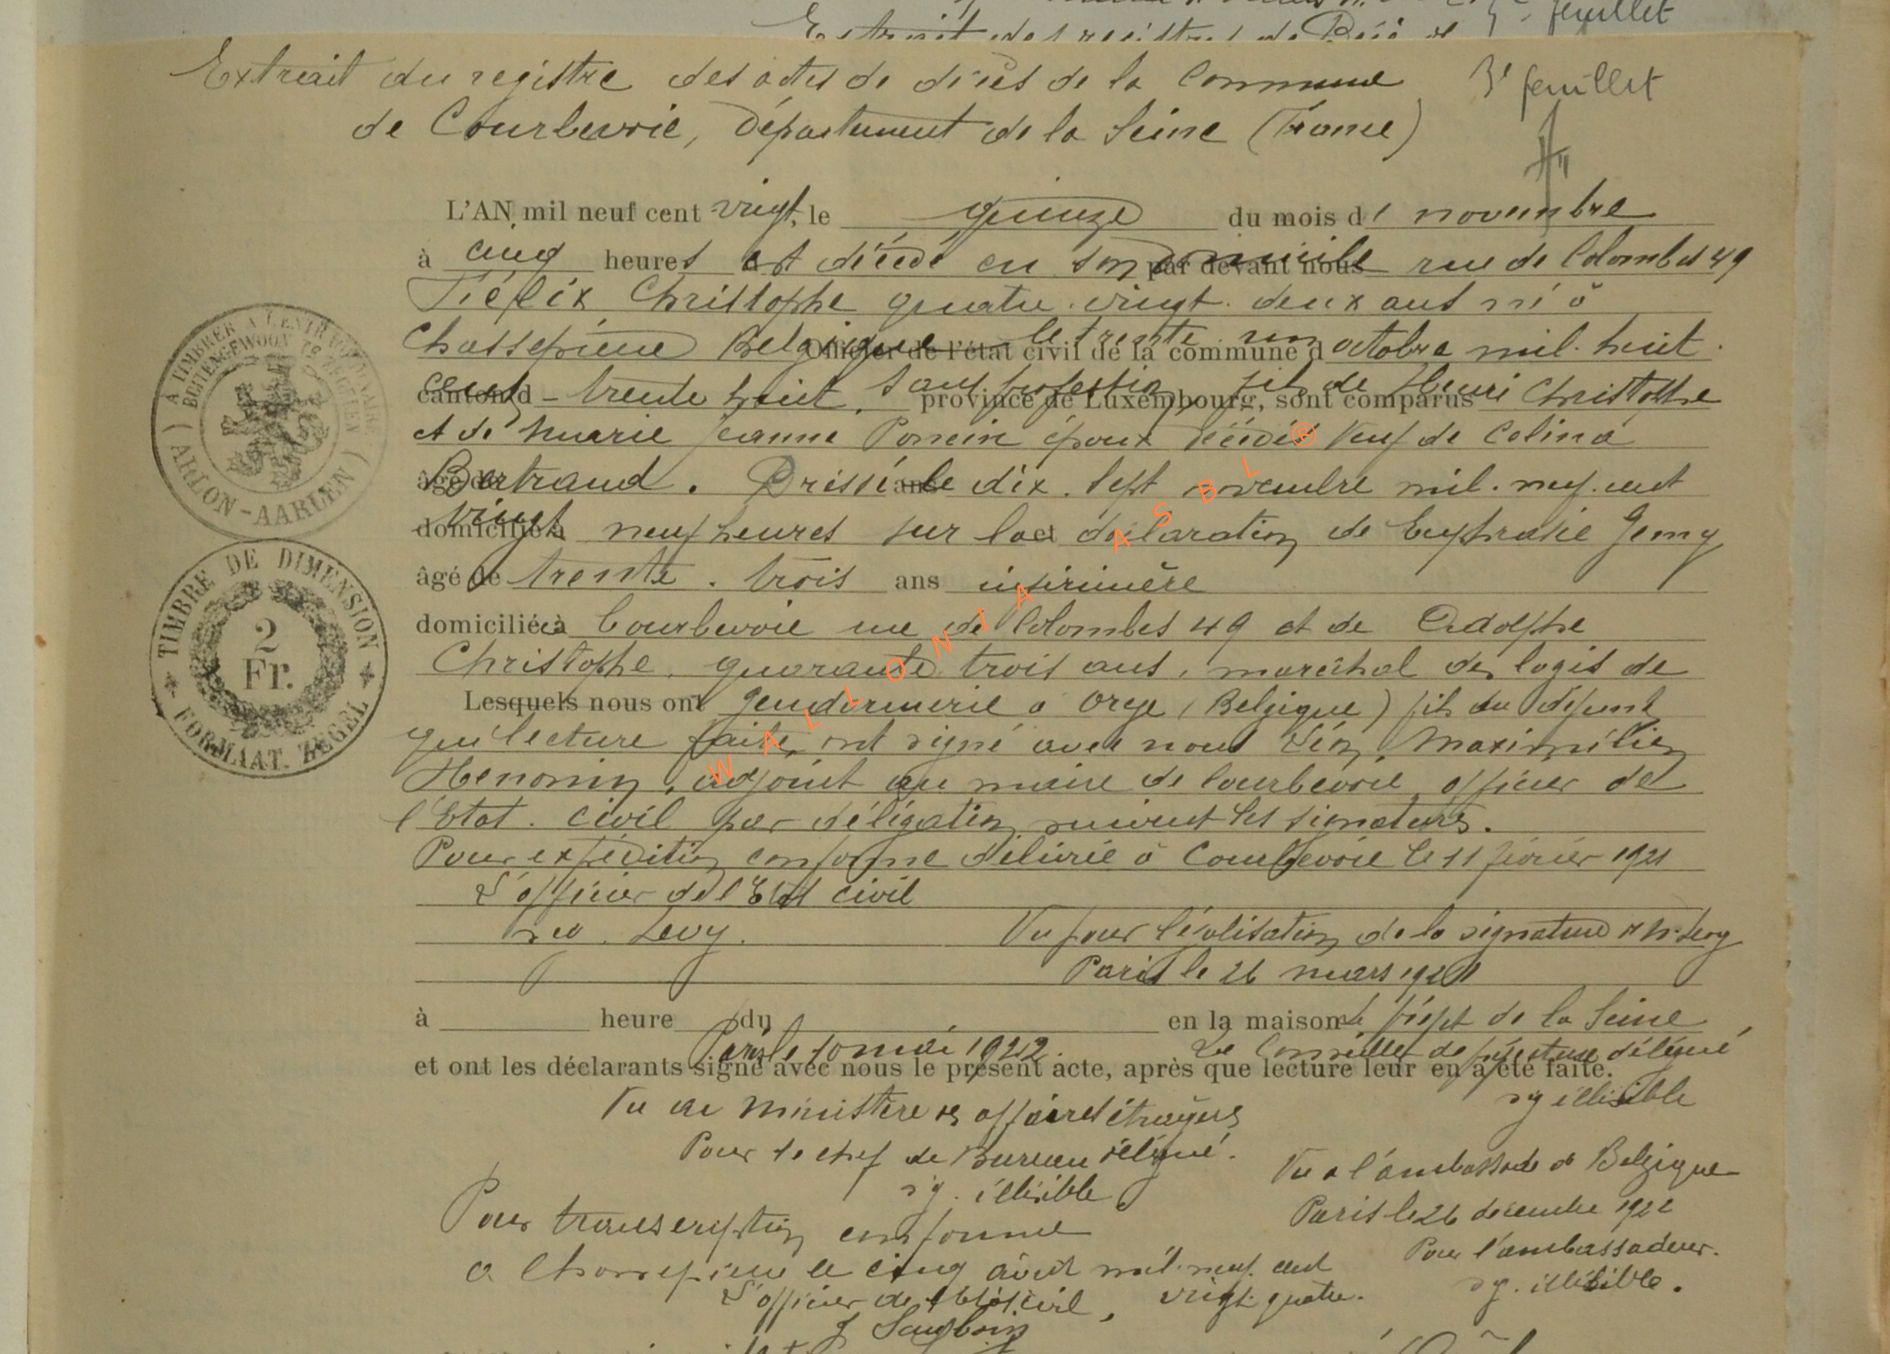 5e feuillet
Extrait des registres de
Extrait du registre des actes de décès de la Commune
3e feuillet
de Courbevoie, Département de la Seine (France)
L'AN mil neuf cent vingt, le quinze du mois de novembre
à cinq heures est décédé en son domicile par devant nous rue de Colombes 49
Félix Christophe quatre-vingt-deux ans né à
Chassepierre Belgique le trente un Officier de l'état civil de la commune d octobre mil-huit-
cent canton d trente huit, sans profession, fils de Henri Christophe province de Luxembourg, sont comparus
et de Marie Jeanne Poncin époux décédé Veuf de Celina
âgé de Bertrand. Dressé ans le dix-sept novembre mil-neuf-cent
domicilié à vingt neuf heures sur la déclaration de Euphrasie Jemy
âgé de trente-trois ans infirmière
domiciliée à Courbevoie rue de Colombes 49 et de Adolphe
Christophe, quarante-trois ans, maréchal des logis de
Lesquels nous ont gendarmerie à Oreye (Belgique) fils du défunt
qui lecture faite, ont signé avec nous Léon Maximilien
Henonin, adjoint au maire de Courbevoie, officier de
l'Etat-civil par délégation suivent les signatures.
Pour expédition conforme délivrée à Courbevoie le 11 février 1921
L'officier de l'Etat civil
Levy.
Vu pour légalisation de la signature de M. Levy
Paris le 26 mars 1921
à heure du en la maison
Le préfet de la Seine
Paris le 10 mai 1922.
Le Conseiller de préfecture délégué
et ont les déclarants signé avec nous le présent acte, après que lecture leur en a été faite.
sg illisible
Vu au Ministère des affaires étrangères
Pour le chef de Bureau délégué.
sg. illisible
Vu à l'ambassade de Belgique
Paris le 26 décembre 1922
Pour l'ambassadeur.
sg. illisible.
Pour transcription conforme
à Chassepierre le cinq août mil-neuf-cent
vingt-quatre.
L'officier de l'état civil,
À TIMBRER À L'EXTRAORDINAIRE
BUITENGEWOON TE ZEGELEN
(ARLON-AARLEN)
TIMBRE DE DIMENSION
2
Fr.
FORMAAT. ZEGEL
WALLONIA ASBL ®